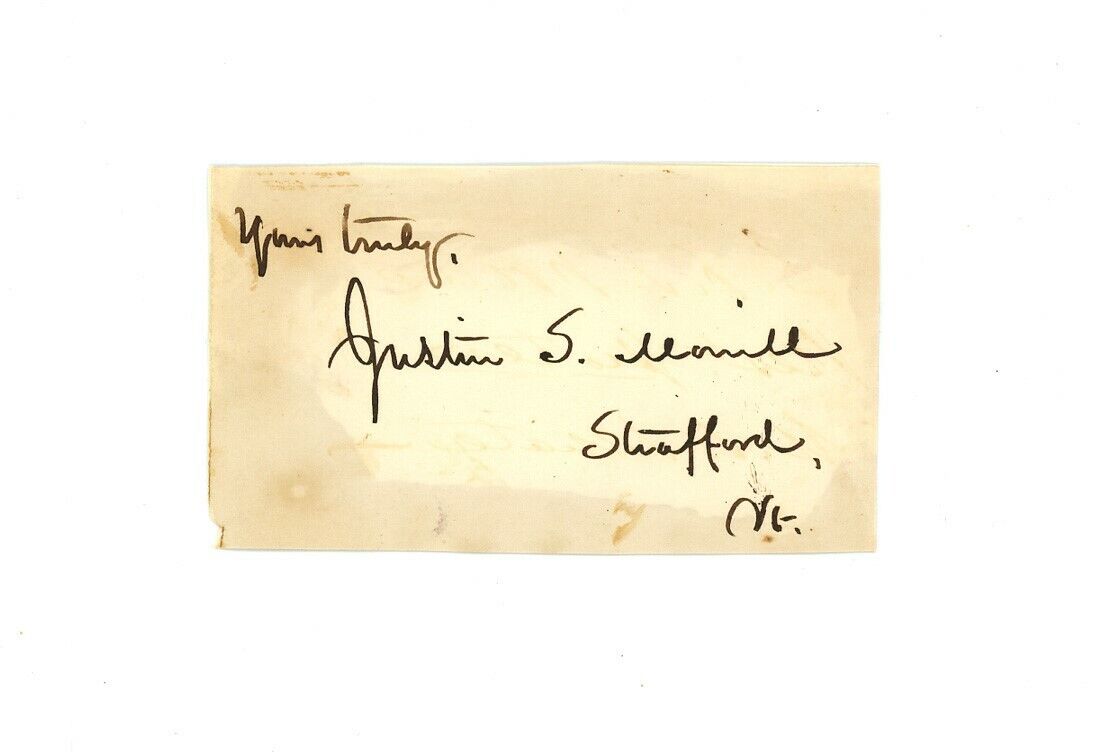 Yours truly,
Justin S. Morrill
Strafford,
Vt.